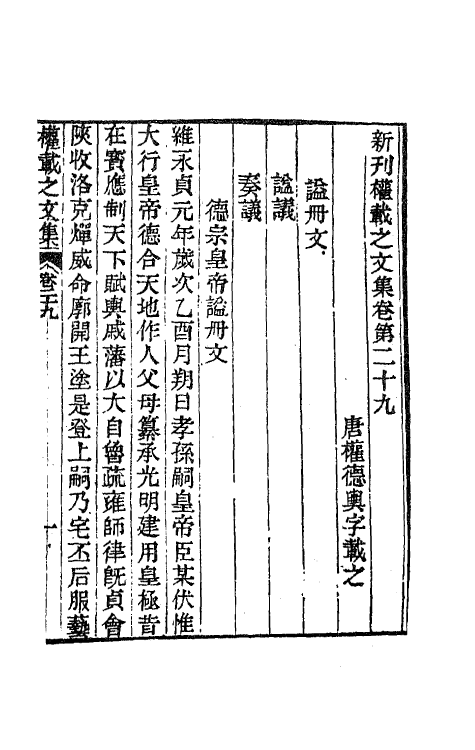 新刊權載之文集卷第二十九
唐權德輿字載之
謚冊文
謚議
奏議
德宗皇帝謚冊文
維永貞元年歲次乙酉月朔日孝孫嗣皇帝臣某伏惟
大行皇帝德合天地作人父母纂承光明建用皇極昔
在寶應制天下賦輿戚藩以大自魯疏雍師律旣貞會
陝收洛克燀威命廓開王塗是登上嗣乃宅丕后服藝
權載之文集 卷二十九 一